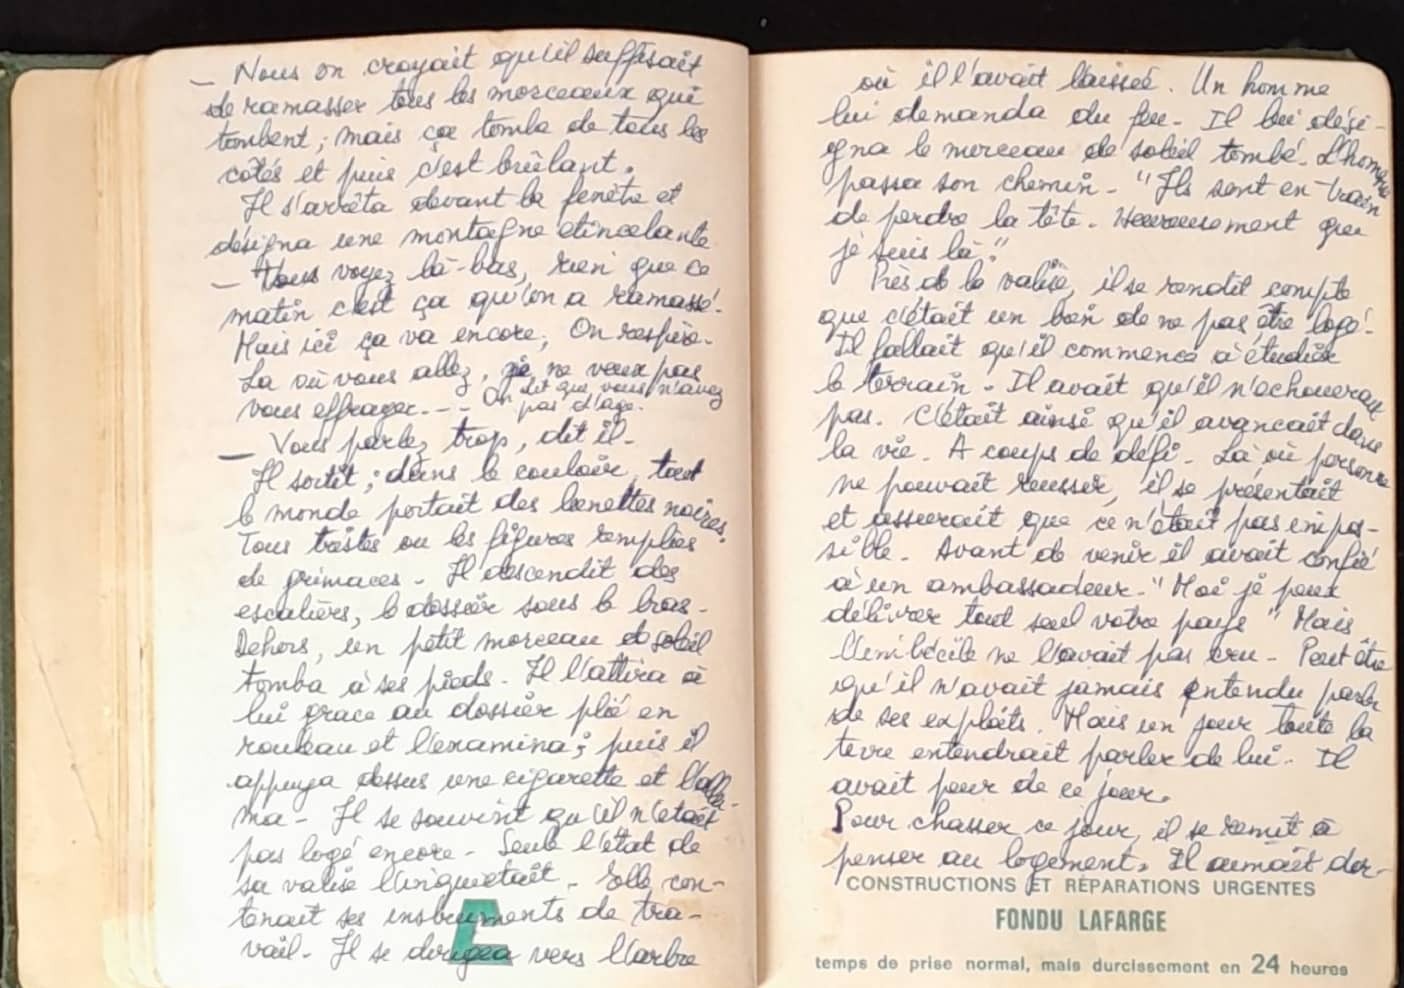 — Nous on croyait qu'il suffisait
de ramasser tous les morceaux qui
tombent ; mais ça tombe de tous les
côtés et puis c'est brûlant.
Il s'arrêta devant la fenête et
désigna une montagne etincelante
— Vous voyez là-bas, rien que ce
matin c'est ça qu'on a ramassé.
Mais ici ça va encore, On respire.
La où vous allez, je ne veux pas
vous effrayer... On dit que vous n'avez
pas d'age.
— Vous parlez trop, dit il.
Il sortit ; dans le couloir, tout
le monde portait des lunettes noires.
Tous tristes ou les figures remplies
de grimaces. Il descendit des
escaliers, le dossier sous le bras.
Dehors, un petit morceau de soleil
tomba à ses pieds. Il l'attira à
lui grace au dossier plié en
rouleau et l'examina ; puis il
appuya dessus une cigarette et l'allu-
ma. Il se souvint qu'il n'était
pas logé encore. Seul l'état de
sa valise l'inquietait. Elle con-
tenait ses instruments de tra-
vail. Il se dirigea vers l'arbre
où il l'avait laissée. Un homme
lui demanda du feu. Il lui dési-
gna le morceau de soleil tombé. L'homme
passa son chemin. "Ils sont en train
de perdre la tête. Heureusement que
je suis là."
Près de la valise, il se rendit compte
que c'était un bon de ne pas être logé.
Il fallait qu'il commence à étudier
le terrain. Il avait qu'il n'echouerait
pas. C'était ainsi qu'il avancait dans
la vie. A coups de défi. Là où personne
ne pouvait reusser, il se présentait
et assurait que ce n'était pas impos-
sible. Avant de venir il avait confié
à un ambassadeur. "Moi je peux
délivrer tout seul votre pays" Mais
l'imbécile ne l'avait pas cru. Peut être
qu'il n'avait jamais entendu parler
de ses exploits. Mais un jour toute la
terre entendrait parler de lui. Il
avait peur de ce jour.
Pour chasser ce jour, il se remit à
penser au logement. Il aimait dor-
CONSTRUCTIONS ET RÉPARATIONS URGENTES
FONDU LAFARGE
temps de prise normal, mais durcissement en 24 heures